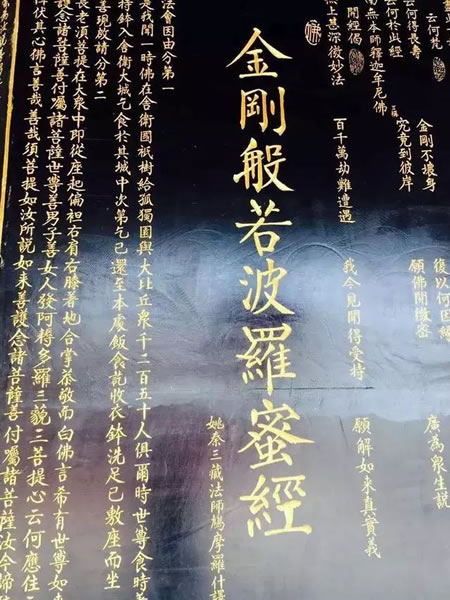 云何梵
云何得長壽 金剛不壞身 復以何因緣
云何於此經 究竟到彼岸 願佛開微密 廣為眾生說
南無本師釋迦牟尼佛
開經偈
上甚深微妙法 百千萬劫難遭遇 我今見聞得受持 願解如來真實義
金剛般若波羅蜜經
姚秦三藏法師鳩摩羅什譯
法會因由分第一
是我聞一時佛在舍衛國祇樹給孤獨園與大比丘眾千二百五十人俱爾時世尊食時
持鉢入舍衛大城乞食於其城中次第乞已還至本處飯食訖收衣鉢洗足已敷座而坐
善現啟請分第二
長老須菩提在大眾中即從座起偏袒右肩右膝著地合掌恭敬而白佛言希有世尊如來
念諸菩薩善付囑諸菩薩世尊善男子善女人發阿耨多羅三藐三菩提心云何應住
伏其心佛言善哉善哉須菩提如汝所說如來善護念諸菩薩善付囑諸菩薩汝今諦